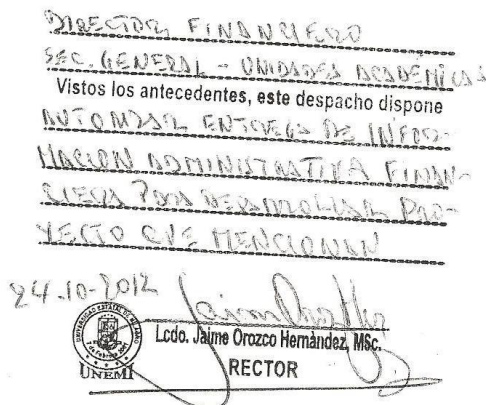 DIRECTOR FINANCIERO
SEC. GENERAL - UNIDADES ACADÉMICAS
Vistos los antecedentes, este despacho dispone
AUTORIZAR ENTREGA DE INFOR-
MACION ADMINISTRATIVA FINAN-
CIERA PARA DESARROLLAR PRO-
YECTO QUE MENCIONAN
24-10-2012
UNIVERSIDAD ESTATAL DE MILAGRO
UNEMI
Lcdo. Jaime Orozco Hernández, MSc.
RECTOR